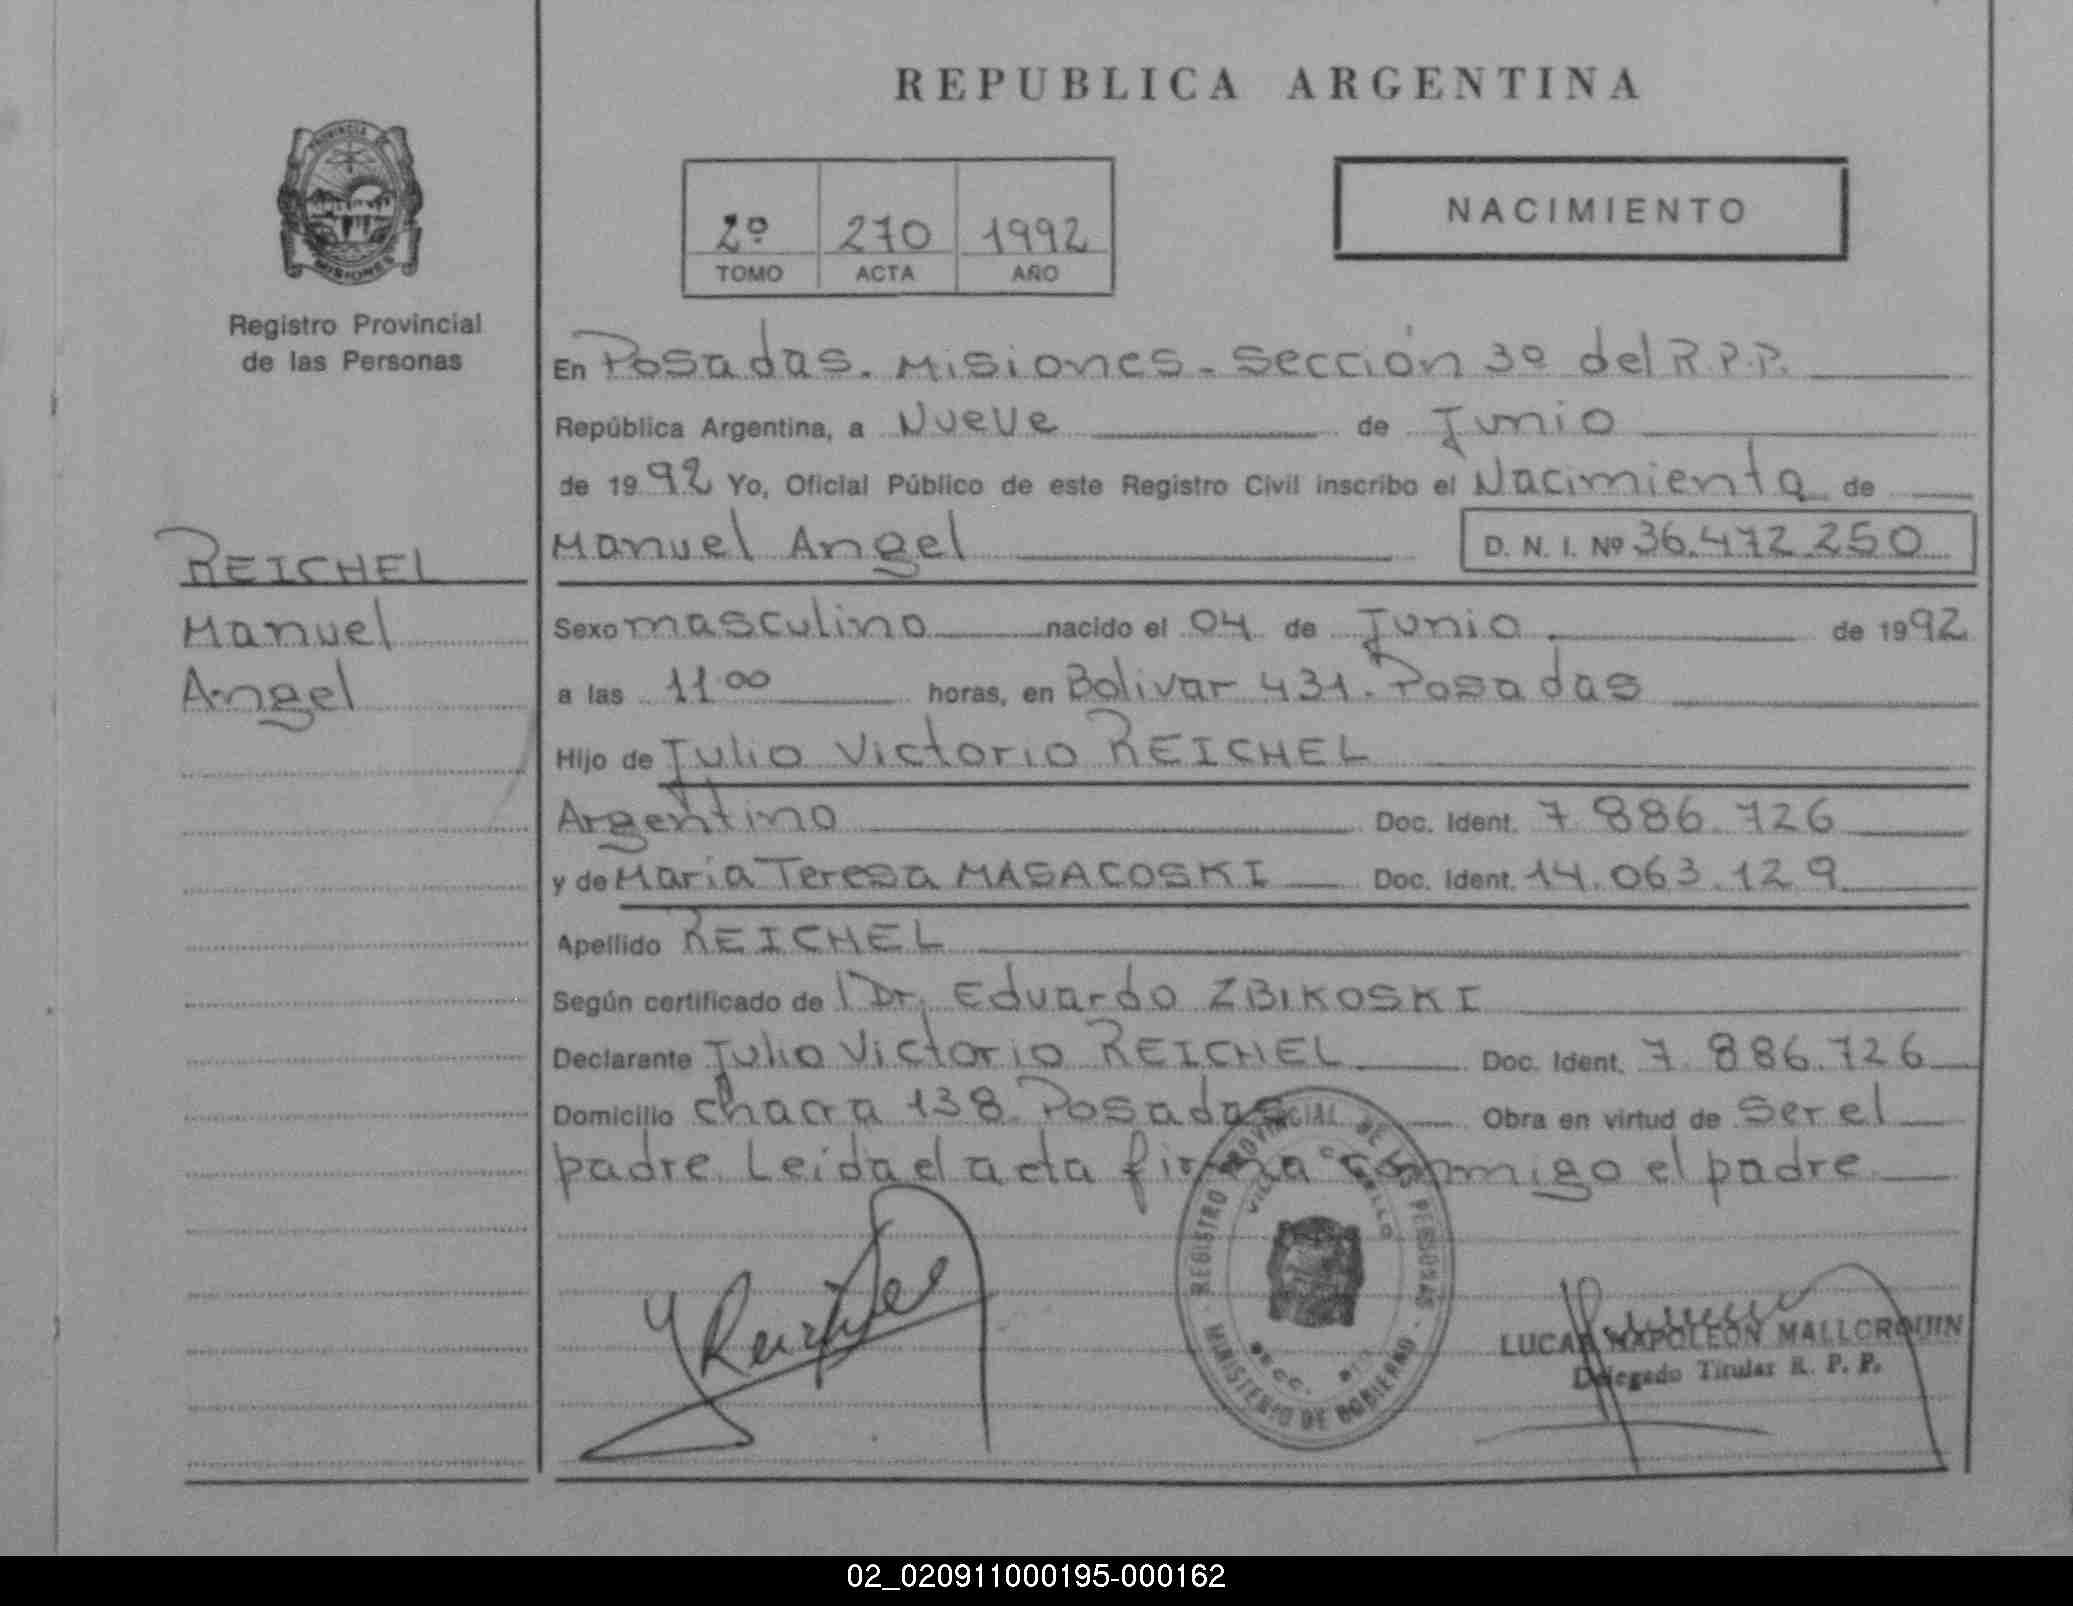 REPUBLICA ARGENTINA
PROVINCIA DE
MISIONES
Registro Provincial
de las Personas
2º 270 1992
TOMO ACTA AÑO
NACIMIENTO
En Posadas. Misiones. Sección 3º del R.P.P.
República Argentina, a Nueve de Junio
de 1992 Yo, Oficial Público de este Registro Civil inscribo el Nacimiento de
Manuel Angel D. N. I. Nº 36.472.250
REICHEL
Manuel
Angel
Sexo masculino nacido el 04 de Junio de 1992
a las 11 00 horas, en Bolivar 431. Posadas
Hijo de Julio Victorio REICHEL
Argentino Doc. Ident. 7 886.726
y de María Teresa MASACOSKI Doc. Ident. 14.063.129
Apellido REICHEL
Según certificado de Dr. Eduardo ZBIKOSKI
Declarante Julio Victorio REICHEL Doc. Ident. 7.886.726
Domicilio chacra 138. Posadas Obra en virtud de ser el
padre. Leída el acta firma conmigo el padre
REGISTRO PROVINCIAL DE LAS PERSONAS
MINISTERIO DE GOBIERNO
SECC.
Reichel
LUCAS NAPOLEON MALLORQUIN
Delegado Titular R. P. P.
02_020911000195-000162